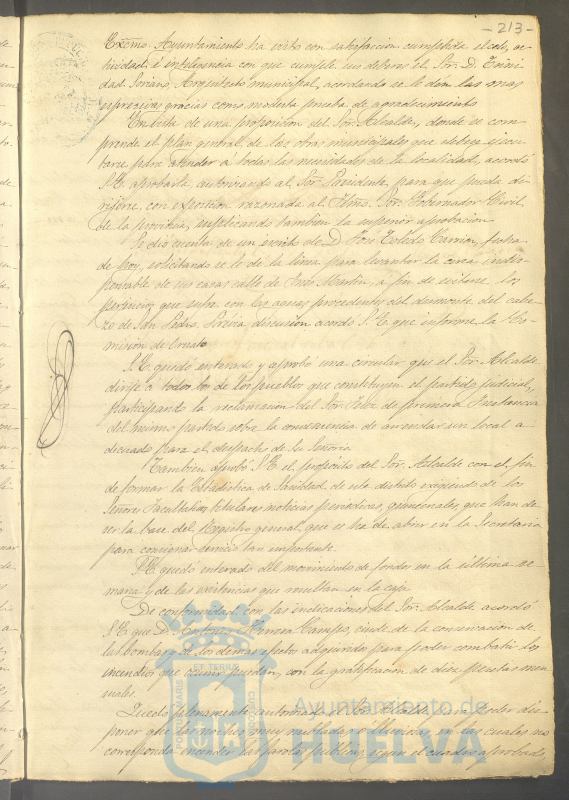 - 213 -
Excmo. Ayuntamiento ha visto con satisfaccion cumplida el celo, ac-
tividad é inteligencia con que cumple sus deberes el Sor. D. Trini-
dad Soriano, Arquitecto municipal, acordando se le den las mas
expresivas gracias como modesta prueba de agradecimiento
En vista de una proposicion del Sor. Alcalde, donde se com-
prende el plan general de las obras municipales que deben ejecu-
tarse para atender a todas las necesidades de la localidad, acordó
S.E. aprobarla, autorizando al Sor. Presidente para que pueda di-
rijirse, con exposicion razonada al Iltmo. Sor. Gobernador Civil
de la provincia, suplicando tambien la superior aprobacion
Se dio cuenta de un escrito de D. José Toledo Carrion, fecha
de hoy, solicitando se le dé la linea para levantar la cerca indis-
pensable de sus casas calle de José Martin, a fin de evitarse los
perjuicios que sufre con las aguas procedentes del desmonte del cabe-
zo de San Pedro. Prévia discusion acordó S.E. que informe la Co-
mision de Ornato
S.E. quedó enterado y aprobó una circular que el Sor. Alcalde
dirije a todos los de los pueblos que constituyen el partido judicial,
participando la reclamacion del Sor. Juez de primera Instancia
del mismo partido sobre la conveniencia de arrendar un local a-
decuado para el despacho de su Señoria
Tambien aprobó S.E. el propósito del Sor. Alcalde con el fin
de formar la Estadistica de Sanidad de este distrito exigiendo de los
Señores Facultativos titulares noticias periodicas, quincenales, que han de
ser la base del Registro general que se ha de abrir en la Secretaria
para consignar servicio tan importante.
S.E. quedó enterado del movimiento de fondos en la última se-
mana y de las existencias que resultan en la caja
De conformidad con las indicaciones del Sor. Alcalde acordó
S.E. que D. Antonio Herrera Campos, cuide de la conservacion de
las bombas y de los demas efectos adquiridos para poder combatir los
incendios que ocurrir puedan, con la gratificacion de diez pesetas men-
suales.
Quedó plenamente autorizado el Sor. Alcalde para poder dis-
poner que las noches muy nubladas ó lluviosas, en las cuales no
corresponda encender las farolas públicas segun el cuadro aprobado
ET TERRÆ
Ayuntamiento de
HUELVA